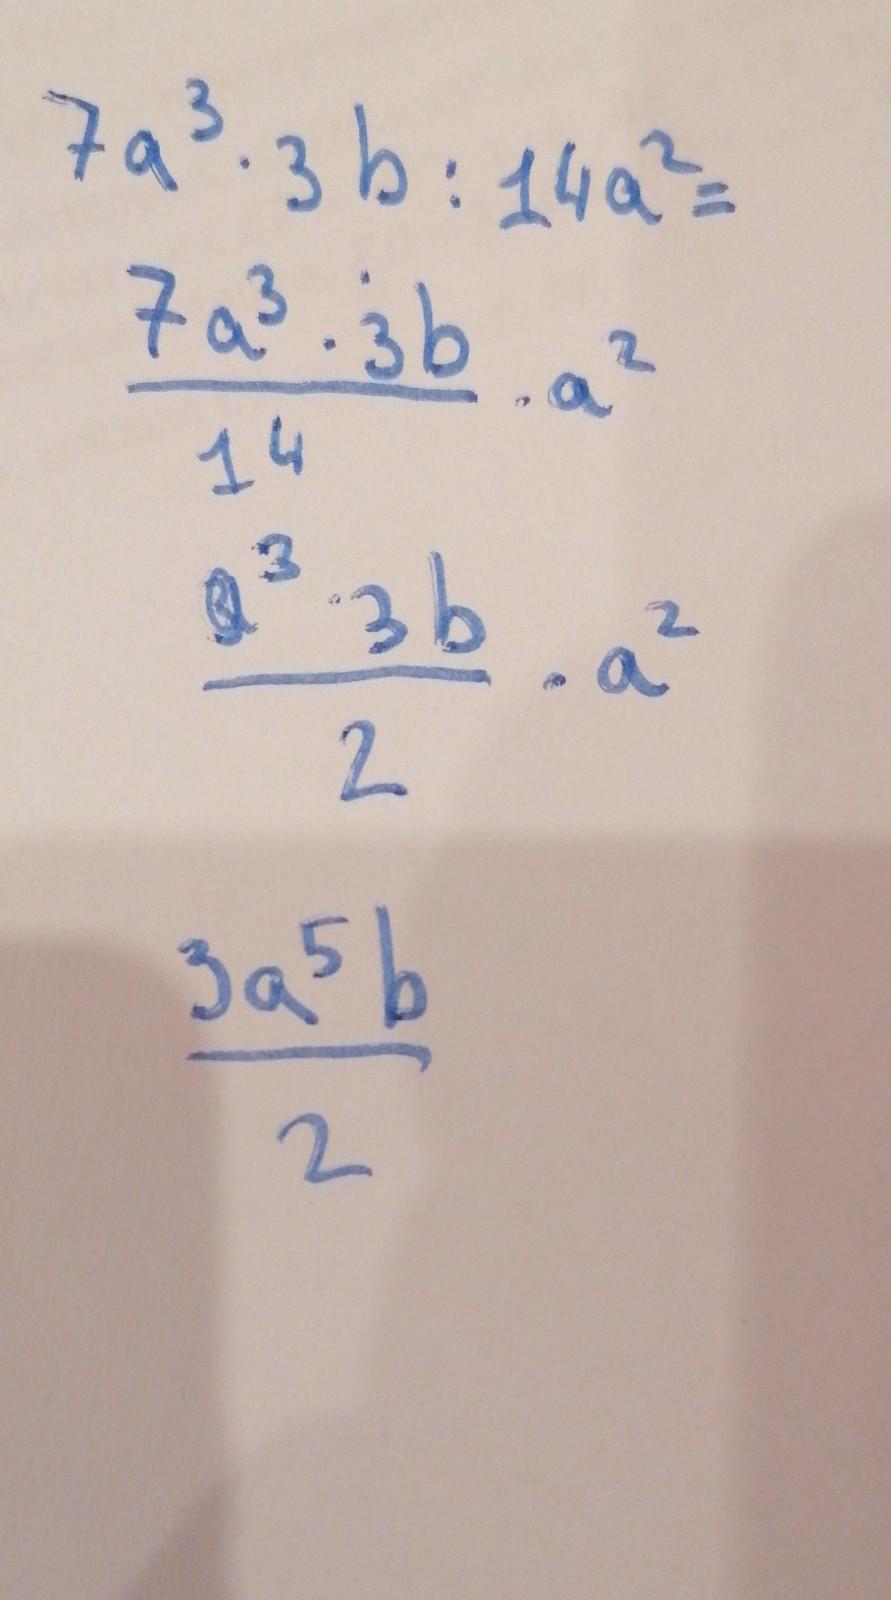 7a³ · 3b : 14a² =
7a³ · 3b / 14 · a²
a³ · 3b / 2 · a²
3a⁵b / 2